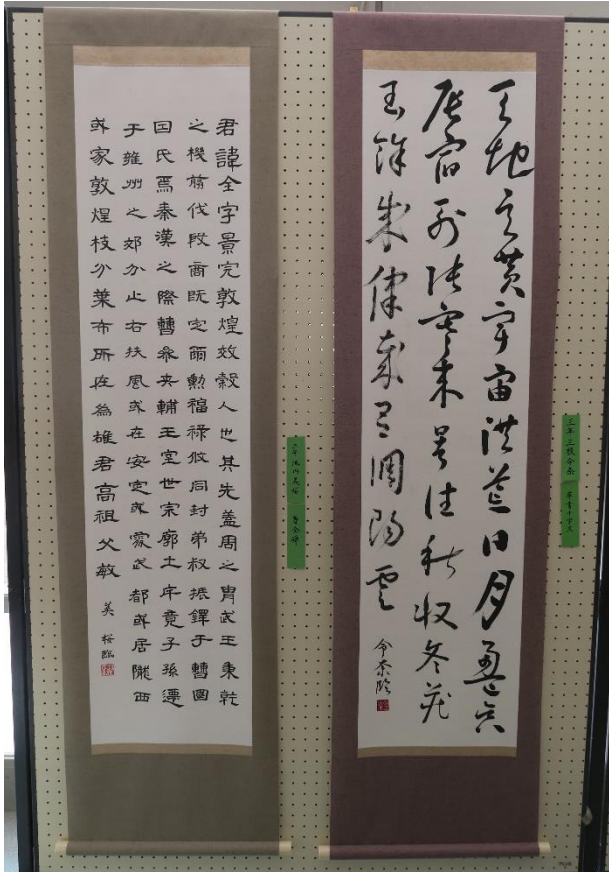 天地玄黄宇宙洪荒日月盈昃
辰宿列張寒来暑往秋収冬蔵
閏餘成律歳呂調陽雲
令奈臨
三年 三枝令奈 草書千字文
君諱全字景完敦煌效穀人也其先蓋周之胄武王秉乾
之機翦伐殷商既定爾勲福祿攸同封弟叔振鐸于曹國
因氏焉秦漢之際曹參夾輔王室世宗廓土斥竟子孫遷
于雍州之郊分止右扶風或在安定或處武都或居隴西
或家敦煌枝分葉布所在為雄君高祖父敏
美桜臨
曹全碑